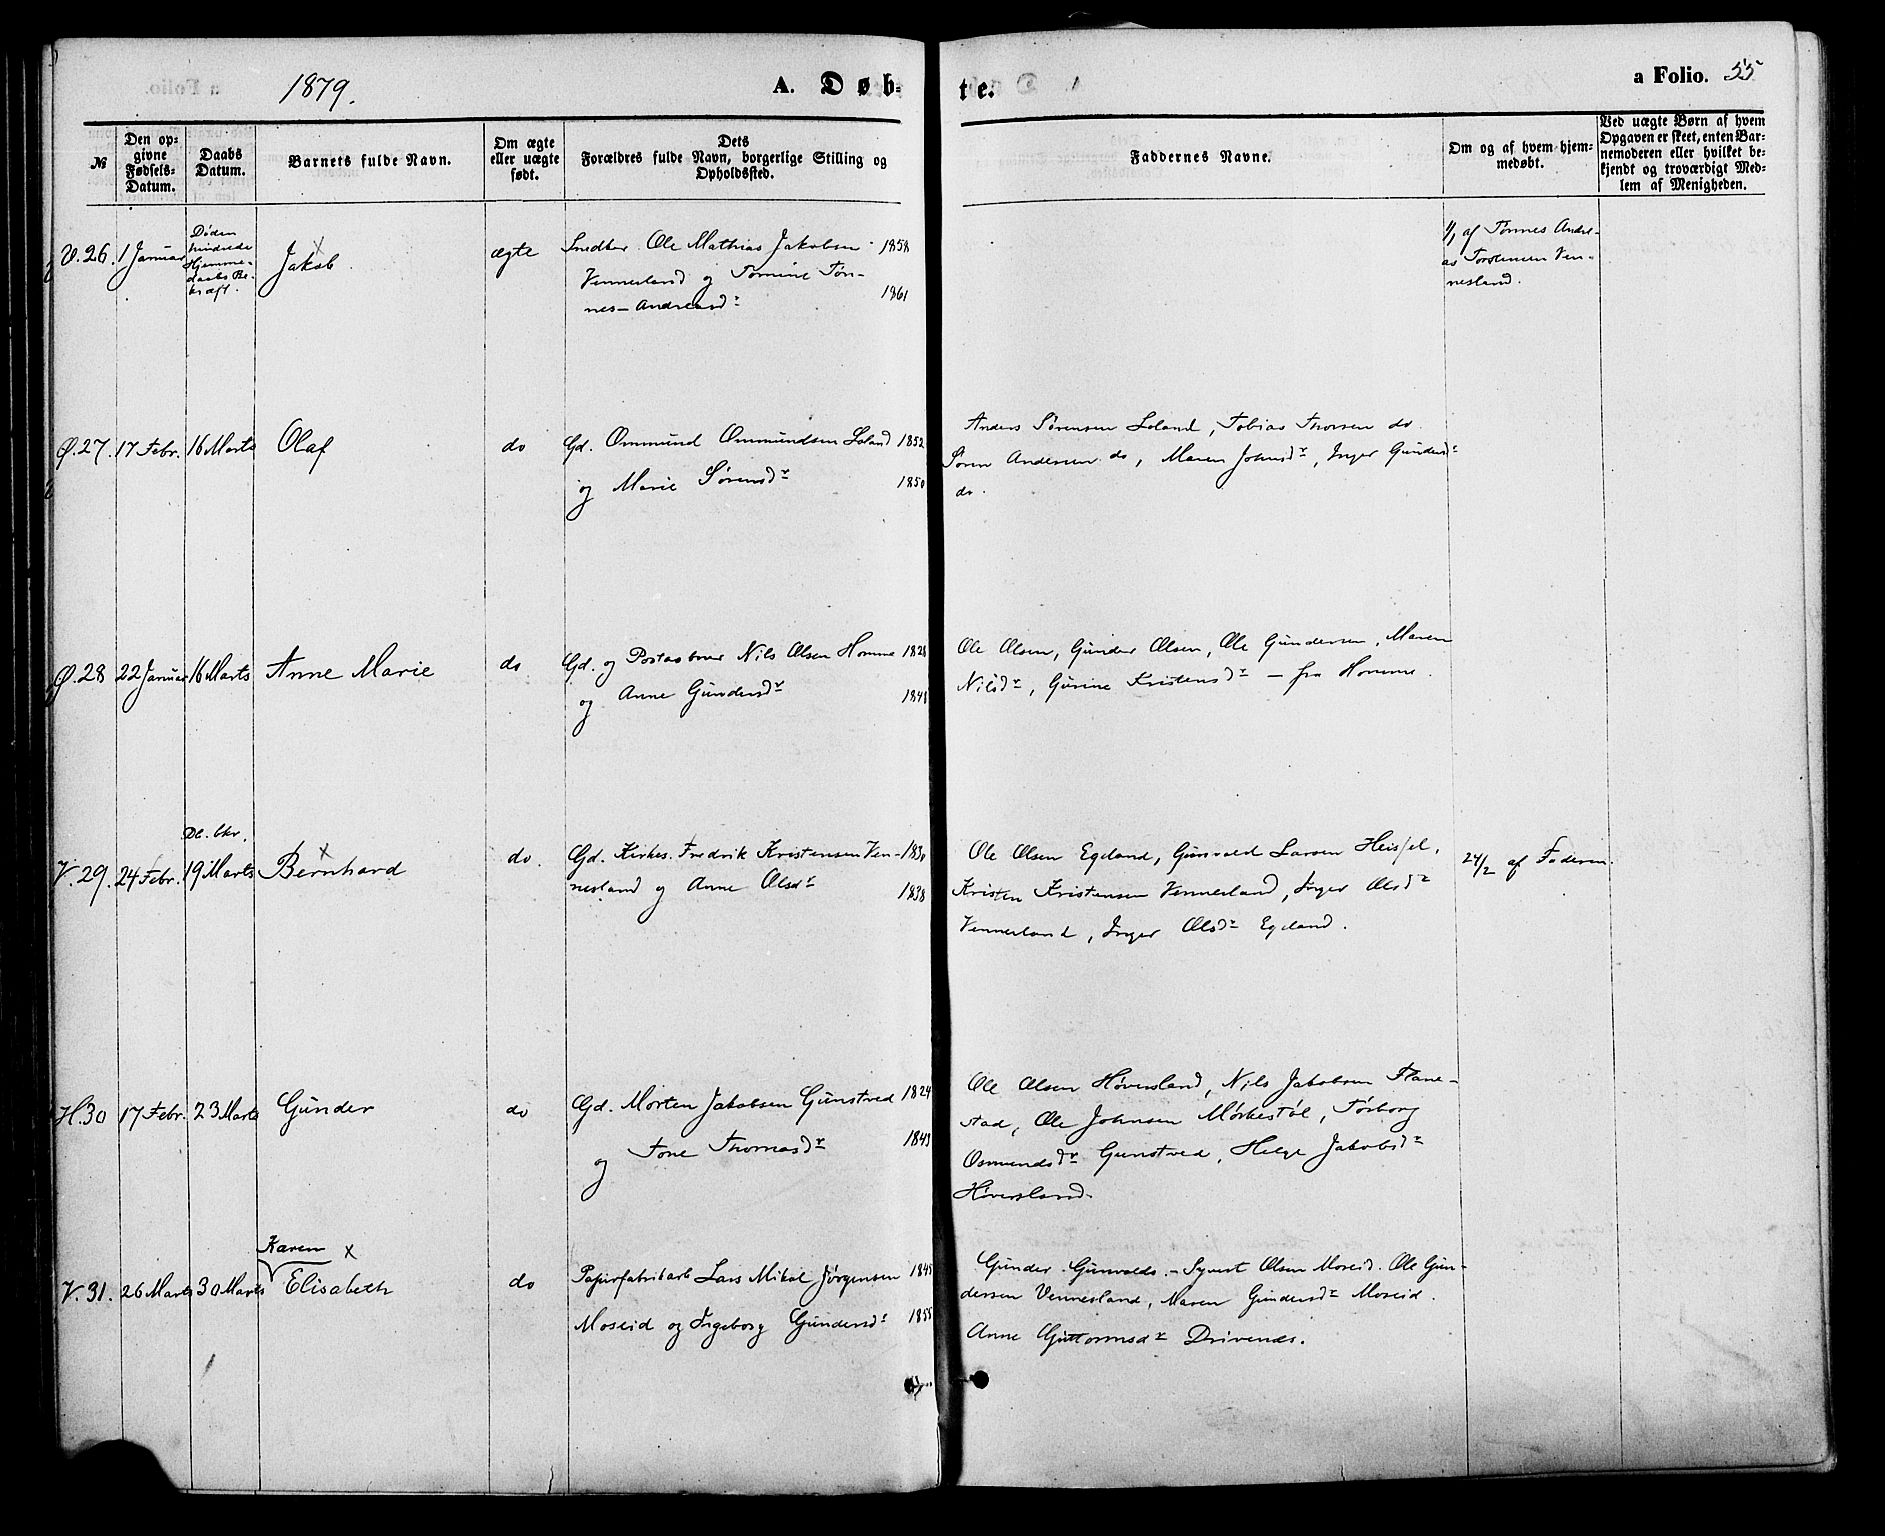 1879.
A. Døb-
te.
a Folio. 55
№
Den op-
givne
Fødsels-
Datum.
Daabs
Datum.
Barnets fulde Navn.
Om ægte
eller uægte
født.
Dets
Forældres fulde Navn, borgerlige Stilling og
Opholdssted.
Faddernes Navne.
Om og af hvem hjem-
medøbt.
Ved uægte Børn af hvem
Opgaven er skeet, enten Bar-
nemoderen eller hvilket be-
kjendt og troværdigt Med-
lem af Menigheden.
V. 26. 1 Januar
Døden
hindrede
Hjemme-
daabs Be-
kræft.
Jakob
ægte
Snedker Ole Mathias Jakobsen 1858
Vennesland og Tomine Tøn- 1861
nes-Andreasdr
1/1 af Tønnes Andre-
as Torstensen Ven-
nesland.
Ø. 27. 17 Febr. 16 Marts Olaf do
Gd. Ommund Ommundsen Loland 1852
og Marie Sørensdr 1850
Anders Sørensen Loland, Tobias Thorsen do.
Søren Andersen do, Maren Johnsdr, Inger Gundersdr
do.
Ø. 28 22 Januar 16 Marts Anne Marie do
Gd. og Postaabner Nils Olsen Homme 1828
og Anne Gundersdr 1848
Ole Olsen, Gunder Olsen, Ole Gundersen, Maren
Nilsdr, Gurine Kristensdr – fra Homme.
V. 29. 24 Febr. 19 Marts Bernhard do.
Gd. Kirkes. Fredrik Kristensen Ven- 1830
nesland og Anne Olsdr 1838
Ole Olsen Egeland, Gunvald Larsen Heisel,
Kristen Kristensen Vennesland, Inger Olsdr
Vennesland, Inger Olsdr Egeland.
24/2 af Faderen.
H. 30 17 Febr. 23 Marts Gunder do
Gd. Morten Jakobsen Gunstved 1824
og Tone Thomasdr 1843
Ole Olsen Høversland, Nils Jakobsen Flane-
stad, Ole Johnsen Mørkestøl, Torborg
Osmundsdr Gunstved, Helge Jakobsdr
Høversland.
Karen
V. 31. 26 Marts 30 Marts Elisabeth do
Papirfabrikarb Lars Mikal Jørgensen 1845
Moseid og Ingeborg Gundersdr 1855
Gunder Gunvalds. – Syvert Olsen Moseid. Ole Gun-
dersen Vennesland, Maren Gundersdr Moseid.
Anne Guttormsdr Drivenes.